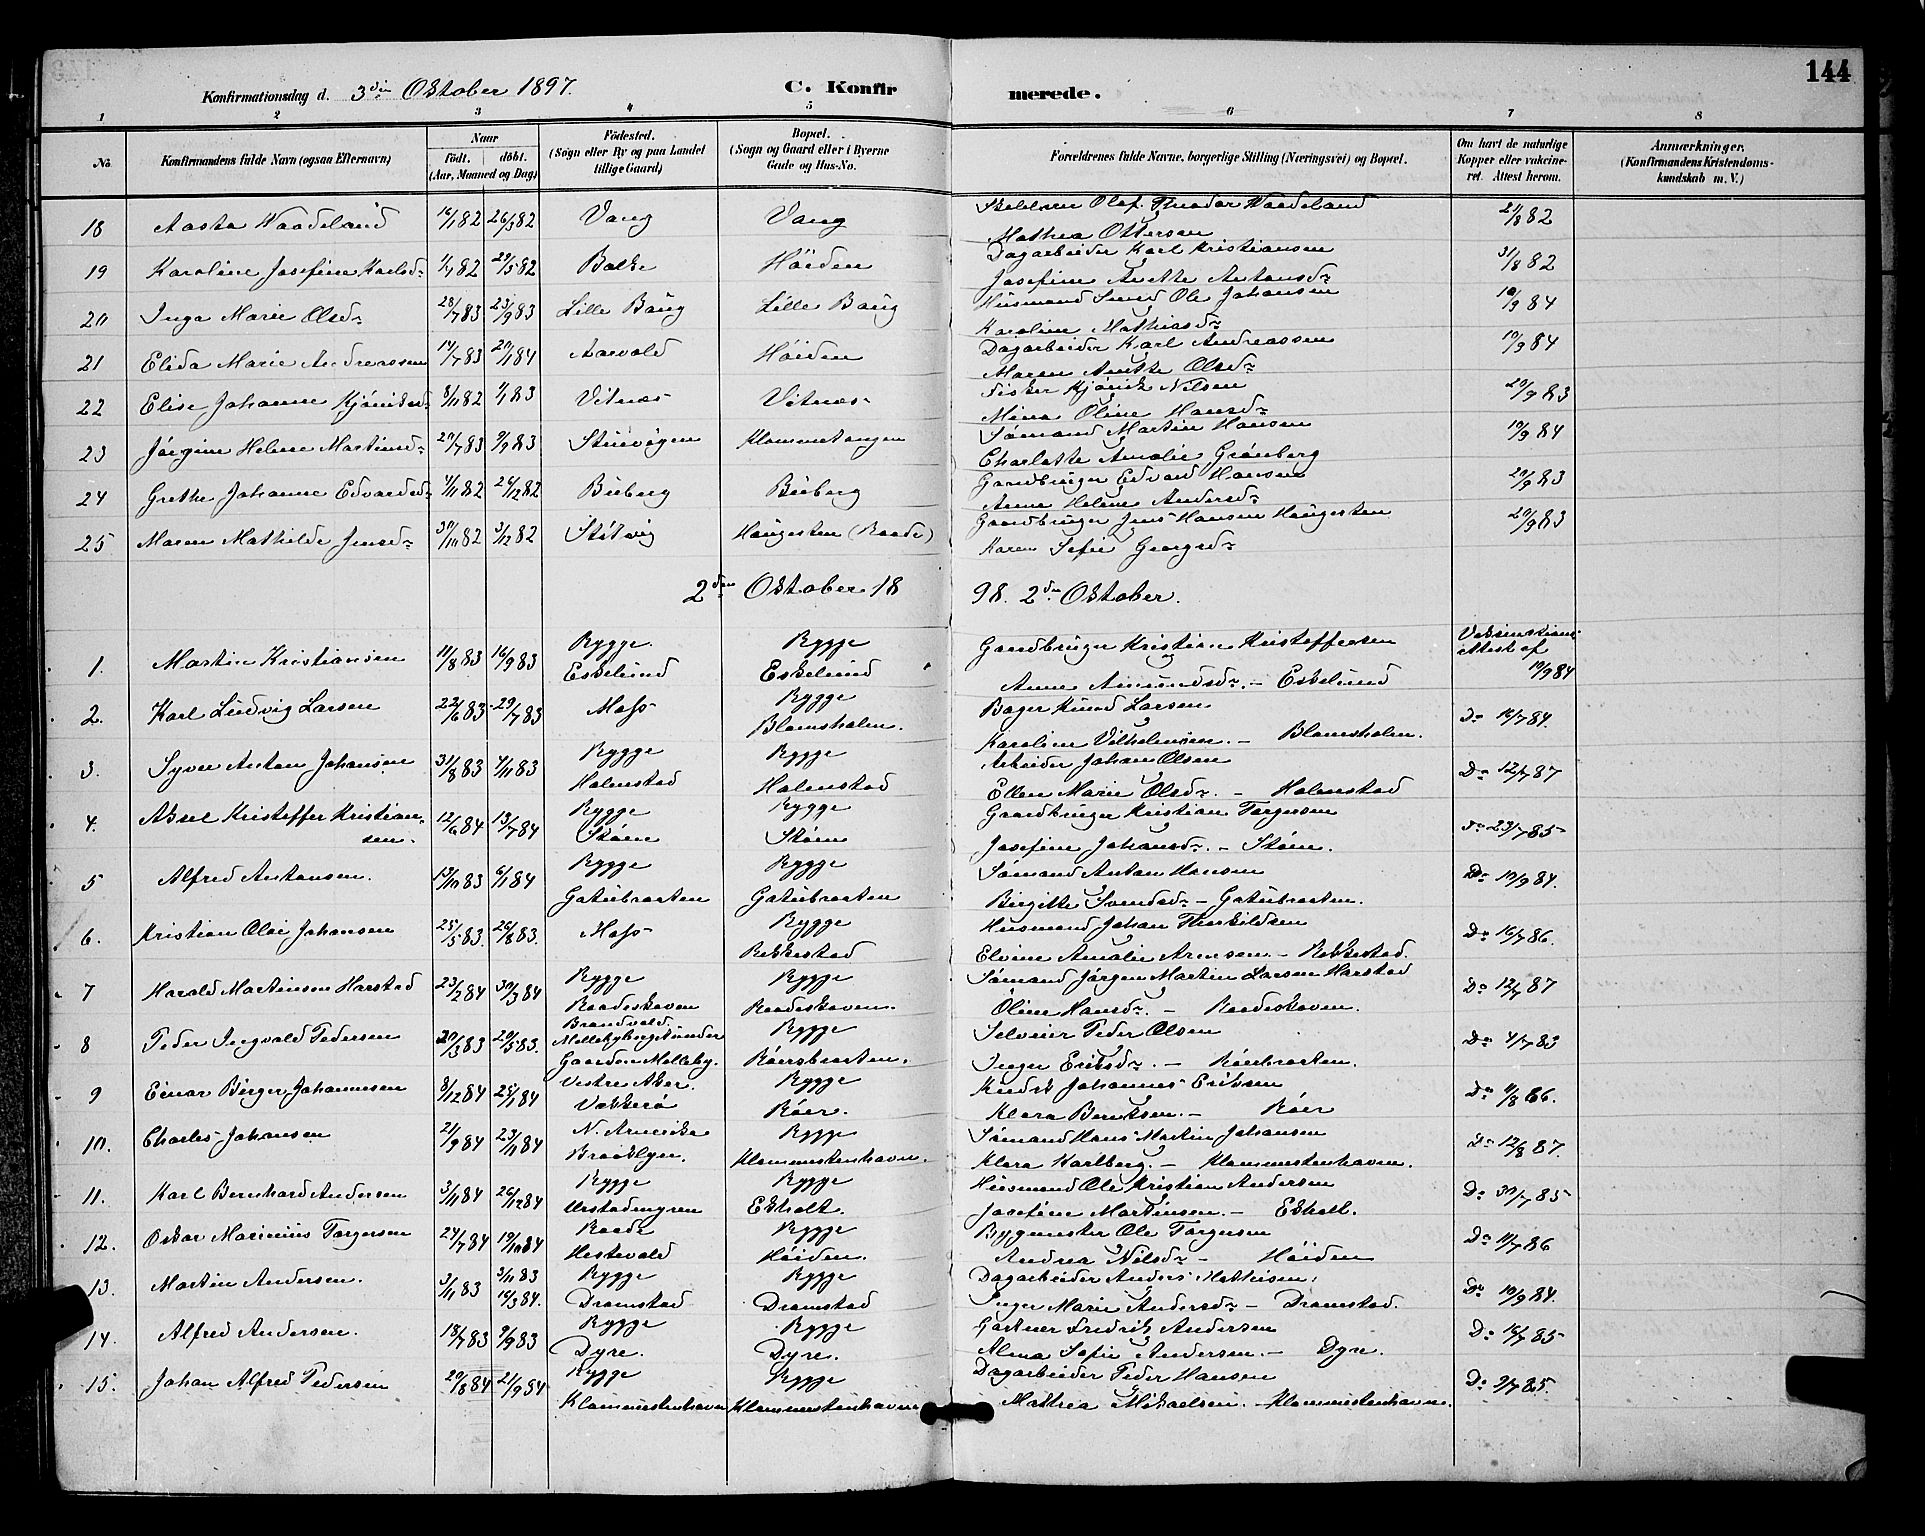 144
Konfirmationsdag d. 3die Oktober 1897.
C. Konfirmerede.
1 2 3 4 5 6 7 8
No.
Konfirmandens fulde Navn (ogsaa Efternavn)
Naar
født. døbt.
(Aar, Maaned og Dag)
Fødested.
(Sogn eller By og paa Landet
tillige Gaard)
Bopæl.
(Sogn og Gaard eller i Byerne
Gade og Hus-No.
Forældrenes fulde Navne, borgerlige Stilling (Næringsvei) og Bopæl.
Om havt de naturlige
Kopper eller vakcine-
ret. Attest herom.
Anmærkninger.
(Konfirmandens Kristendoms-
kundskab m. V.)
18 Aasta Waadeland 16/1 82 26/3 82 Vang Vang Olaf Theodor Waadeland 21/8 82
Mathea Ottersen
19 Karoline Josefine Karlsdr 1/4 82 29/5 82 Bakke Høiden Dagarbeider Karl Kristiansen 31/8 82
Josefine Anette Antonsdr
20 Inga Marie Olsdr 28/7 83 23/9 83 Lille Baug Lille Baug Husmand Ole Johansen 10/9 84
Karoline Mathiasdr
21 Elida Marie Andreassen 14/7 83 20/1 84 Aarvold Høiden Dagarbeider Karl Andreassen 10/9 84
Maren Anette Olsdr
22 Elise Johanne Kjøniksdr 8/11 82 1/1 83 Vitnæs Vitnæs Fisker Kjønik Nilsen 20/9 83
Mina Oline Hansdr
23 Jørgine Helene Martinsdr 20/7 83 9/9 83 Støtvigen Klommetangen Sømand Martin Hansen 10/9 84
Charlotte Amalie Grønberg
24 Grethe Johanne Edvardsdr 4/11 82 26/12 82 Bieberg Bieberg Gaardbruger Edvard Hansen 20/9 83
Anne Helene Andersdr
25 Maren Mathilde Jensdr 30/10 82 3/12 82 Støtvig Haugesten (Raade) Gaardbruger Jens Hansen Haugesten 20/9 83
Karen Sofie Georgsdr
2den Oktober 1898. 2den Oktober.
1. Martin Kristiansen 11/8 83 16/9 83 Rygge Rygge Gaardbruger Kristian Kristoffersen Vaksinations
attest af
Eskelund Eskelund Anne Amundsdr. - Eskelund 10/9 84
2. Karl Ludvig Larsen 22/6 83 29/7 83 Moss Rygge Bager Knud Larsen Do 16/7 84.
Blomsholm. Karoline Vilhelmsen. - Blomsholm.
3. Syver Anton Johansen 31/8 83 4/11 83 Rygge Rygge Arbeider Johan Olsen Do 12/7 87
Halmstad Halmstad Ellen Marie Olsdr. - Halmstad
4. Aksel Kristoffer Kristian- 12/6 84 13/7 84 Rygge Rygge Gaardbruger Kristian Torgersen Do 23/7 85
sen. Skøien Skøien Josefine Johansdr. - Skøien.
5 Alfred Antonsen. 15/10 83 6/1 84 Rygge Rygge Sømand Anton Hansen Do 10/9 84.
Gatubraaten Gatubraaten Birgitte Svendsdr - Gatubraaten.
6. Kristian Olai Johansen 25/5 83. 26/8 83. Moss Rygge Husmand Johan Therkildsen Do 16/7 86.
Rekkestad Elvine Amalie Arnesen - Rekkestad.
7 Harald Martinsen Harstad 23/2 84 30/3 84 Rygge Rygge Sømand Jørgen Martin Larsen Harstad Do 12/7 87
Raadeskoven Raadeskoven. Oline Hansdr. - Raadeskoven.
8 Peder Ingvald Pedersen 20/3 83 20/5 83. Brandvold. Rygge Selveier Peder Olsen Do 4/7 83
Mellebyberget under
Gaarden Melleby. Røersbraaten. Inger Eriksdr. - Røerbraaten.
9 Einar Birger Johannesen 8/12 84 25/1 84 Vestre Aker. Rygge Kudsk Johannes Eriksen Do 11/8 86.
Vækkerø Røer. Klara Berntsen. - Røer
10. Charles Johansen 21/9 84 23/11 84 N. Amerika Rygge Sømand Hans Martin Johansen Do 12/8 87.
Brooklyn. Klommestenhavn. Klara Karlberg. - Klommestenhavn.
11. Karl Bernhard Andersen 3/11 84 26/12 84 Rygge Rygge Husmand Ole Kristian Andersen Do 30/7 85
Urstadengen Ekholt. Josefine Martinsen. - Ekholt.
12. Oskar Marinius Torgersen 24/7 84 19/10 84 Raade Rygge Bygmester Ole Torgersen Do 11/7 86
Hestevold Høiden. Andrea Nilsdr - Høiden
13. Martin Andersen. 3/11 83 3/11 83 Rygge Rygge Dagarbeider Anders Mathisen. Do 10/9 84.
16/3 84. Dramstad Dramstad Inger Marie Andersdr - Dramstad.
14. Alfred Andersen. 18/7 83 9/9 83 Rygge Rygge Gartner Fredrik Andersen Do 16/7 85
Dyre. Dyre. Alma Sofie Andersen. - Dyre.
15. Johan Alfred Pedersen 20/8 84 21/9 84 Rygge Rygge Dagarbeider Peder Hansen Do 9/7 85.
Klommestenhavn Klommestenhavn Mathea Mikaelsen. - Klommestenhavn.